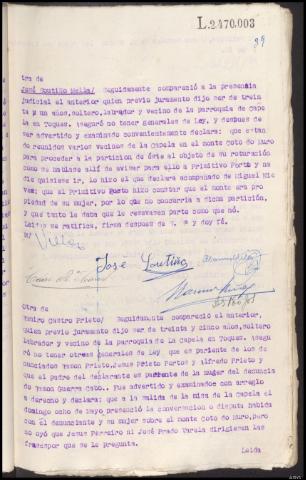 L.2470.003
39
tra de
José Soutiño Mella/ Seguidamente compareció a la presencia
judicial el anterior quien previo juramento dijo ser de trein
ta y un años, soltero, labrador y vecino de la parroquia de Cape
la en Toques, aseguró no tener generales de Ley, y despues de
ser advertido y examinado convenientemente declara: que estan
do reunidos varios vecinos de la Capela en el monte Coto do Muro
para proceder a la particion de éste el objeto de su roturación
como se hallase allí de avisar para ello a Primitivo Porto y no
die quisiese ir, lo hizo el que declara acompañado de Miguel Nie
ves: que el Primitivo Porto hizo constar que el monte era pro
piedad de su mujer, por lo que no concurría a dicha partición,
y que tanto le daba que le reservaran parte como que nó.
Leida se ratifica, firma despues de V. S y doy fé.
José Soutiño
Otra de
Ramiro Castro Prieto/ Seguidamente compareció el anterior,
quien previo juramento dijo ser de treinta y cinco años, soltero
labrador y vecino de la parroquia de La Capela en Toques, asegu
ró no tener otras generales de Ley, que es pariente de los de
nunciados Ramon Prieto, Jesus Prieto Portos y Alfredo Prieto y
que el padre del declarante es pariente de la mujer del denuncia
do Ramon Guerra Cabo.. Fue advertido y examinado con arreglo
a derecho y declara: que a la salida de la misa de la Capela el
domingo ocho de mayo, presenció la conversacion o disputa habida
con el denunciante y su mujer sobre el monte Coto do Muro, pero
no oyó que Jesus Ferreiro ni José Prado Varela dirigieran las
frases por que se le pregunta.
Leida